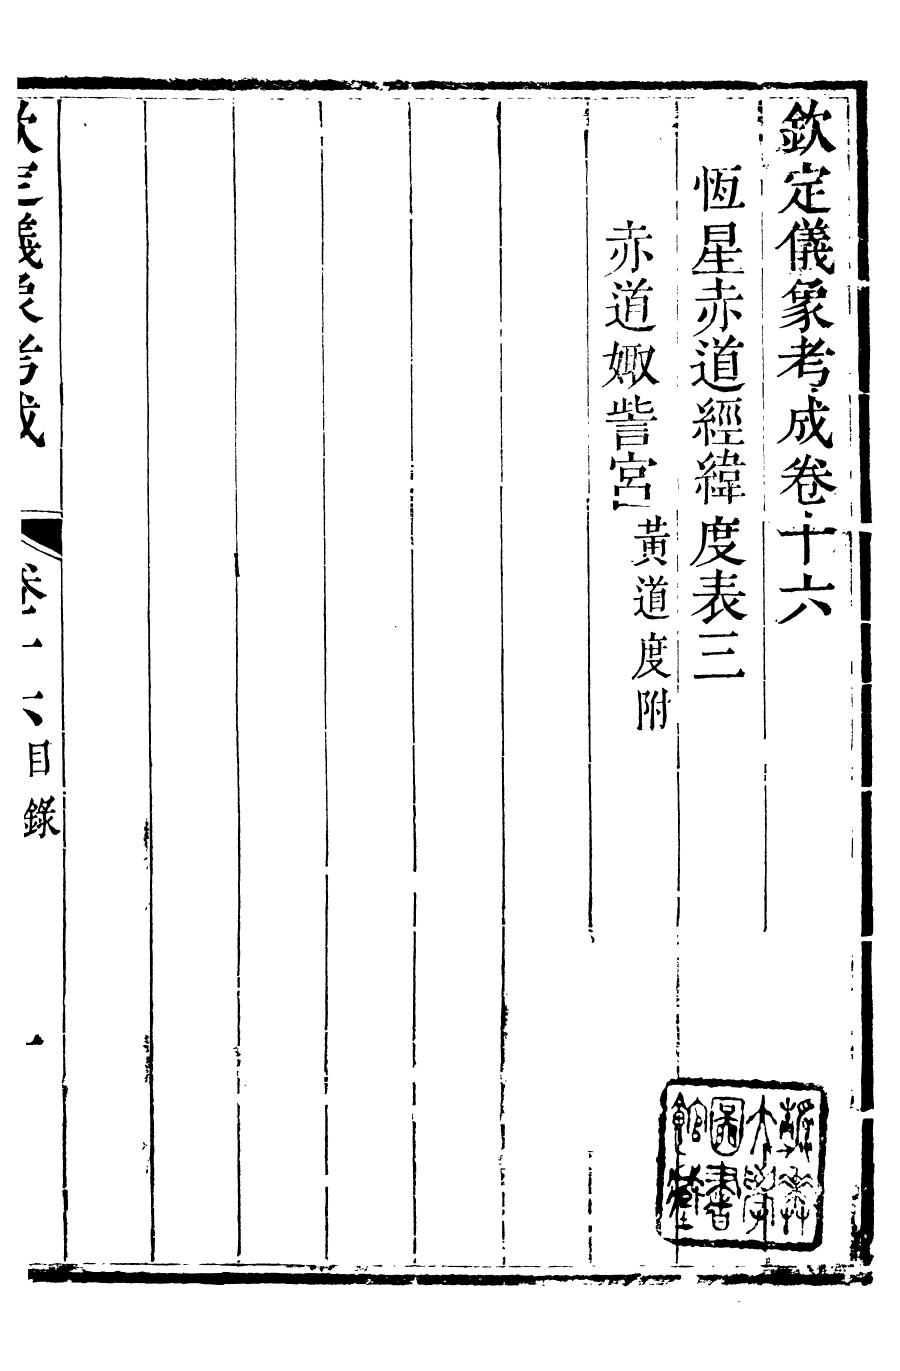 欽定儀象考成卷十六
恆星赤道經緯度表三
赤道娵訾宮黃道度附
欽定儀象考成 卷十六目錄 一
燕京大學圖書館藏